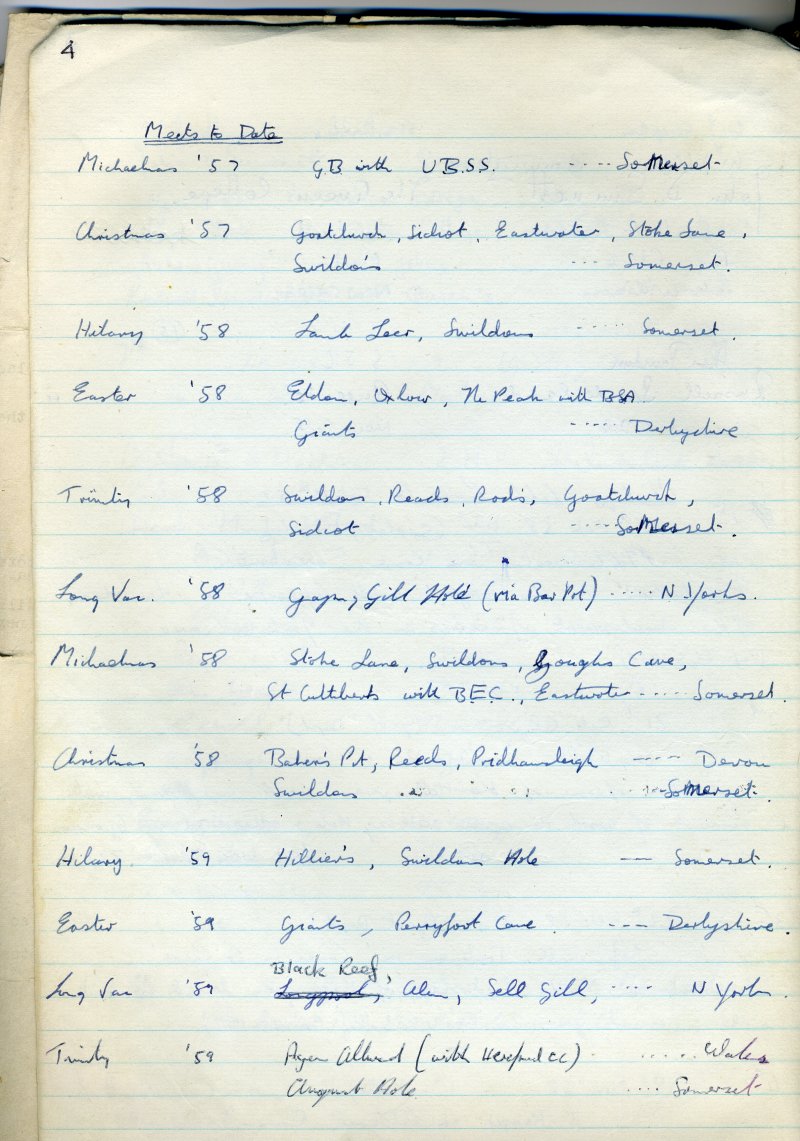 4
Meets to Date
Michaelmas '57 G.B with U.B.S.S. ---- Somerset
Christmas '57 Goatchurch, Sidcot, Eastwater, Stoke Lane,
Swildon's --- Somerset.
Hilary '58 Lamb Leer, Swildons ---- Somerset.
Easter '58 Eldon, Oxlow, The Peak with BSA
Giants ----- Derbyshire
Trinity '58 Swildons, Reads, Rod's, Goatchurch,
Sidcot ---- Somerset.
Long Vac. '58 Gaping Gill Hole (via Bar Pot) ..... N Yorks.
Michaelmas '58 Stoke Lane, Swildons, Goughs Cave,
St Cuthberts with B.E.C., Eastwater ---- Somerset.
Christmas '58 Baker's Pit, Reeds, Pridhamsleigh ---- Devon
Swildons Somerset.
Hilary '59 Hillier's, Swildons Hole -- Somerset.
Easter '59 Giants, Perryfoot Cave. --- Derbyshire.
Black Reef,
Long Vac '59 Alum, Sell Gill, .... N Yorks.
Trinity '59 Agen Allwed (with Hereford CC) ..... Wales
August Hole .... Somerset